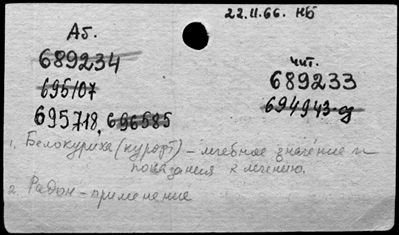 22.II.66. НБ
Аб.
689234
чит.
689233
695107
694943-од
695718, 696585
1. Белокуриха (курорт) – лечебное значение и
показания к лечению.
2. Радон – применение